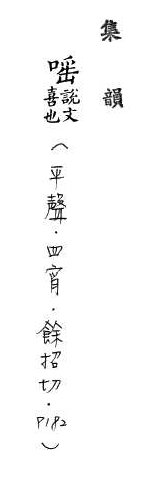 集韻
嗂說文喜也(平聲．四宵．餘招切．P182)